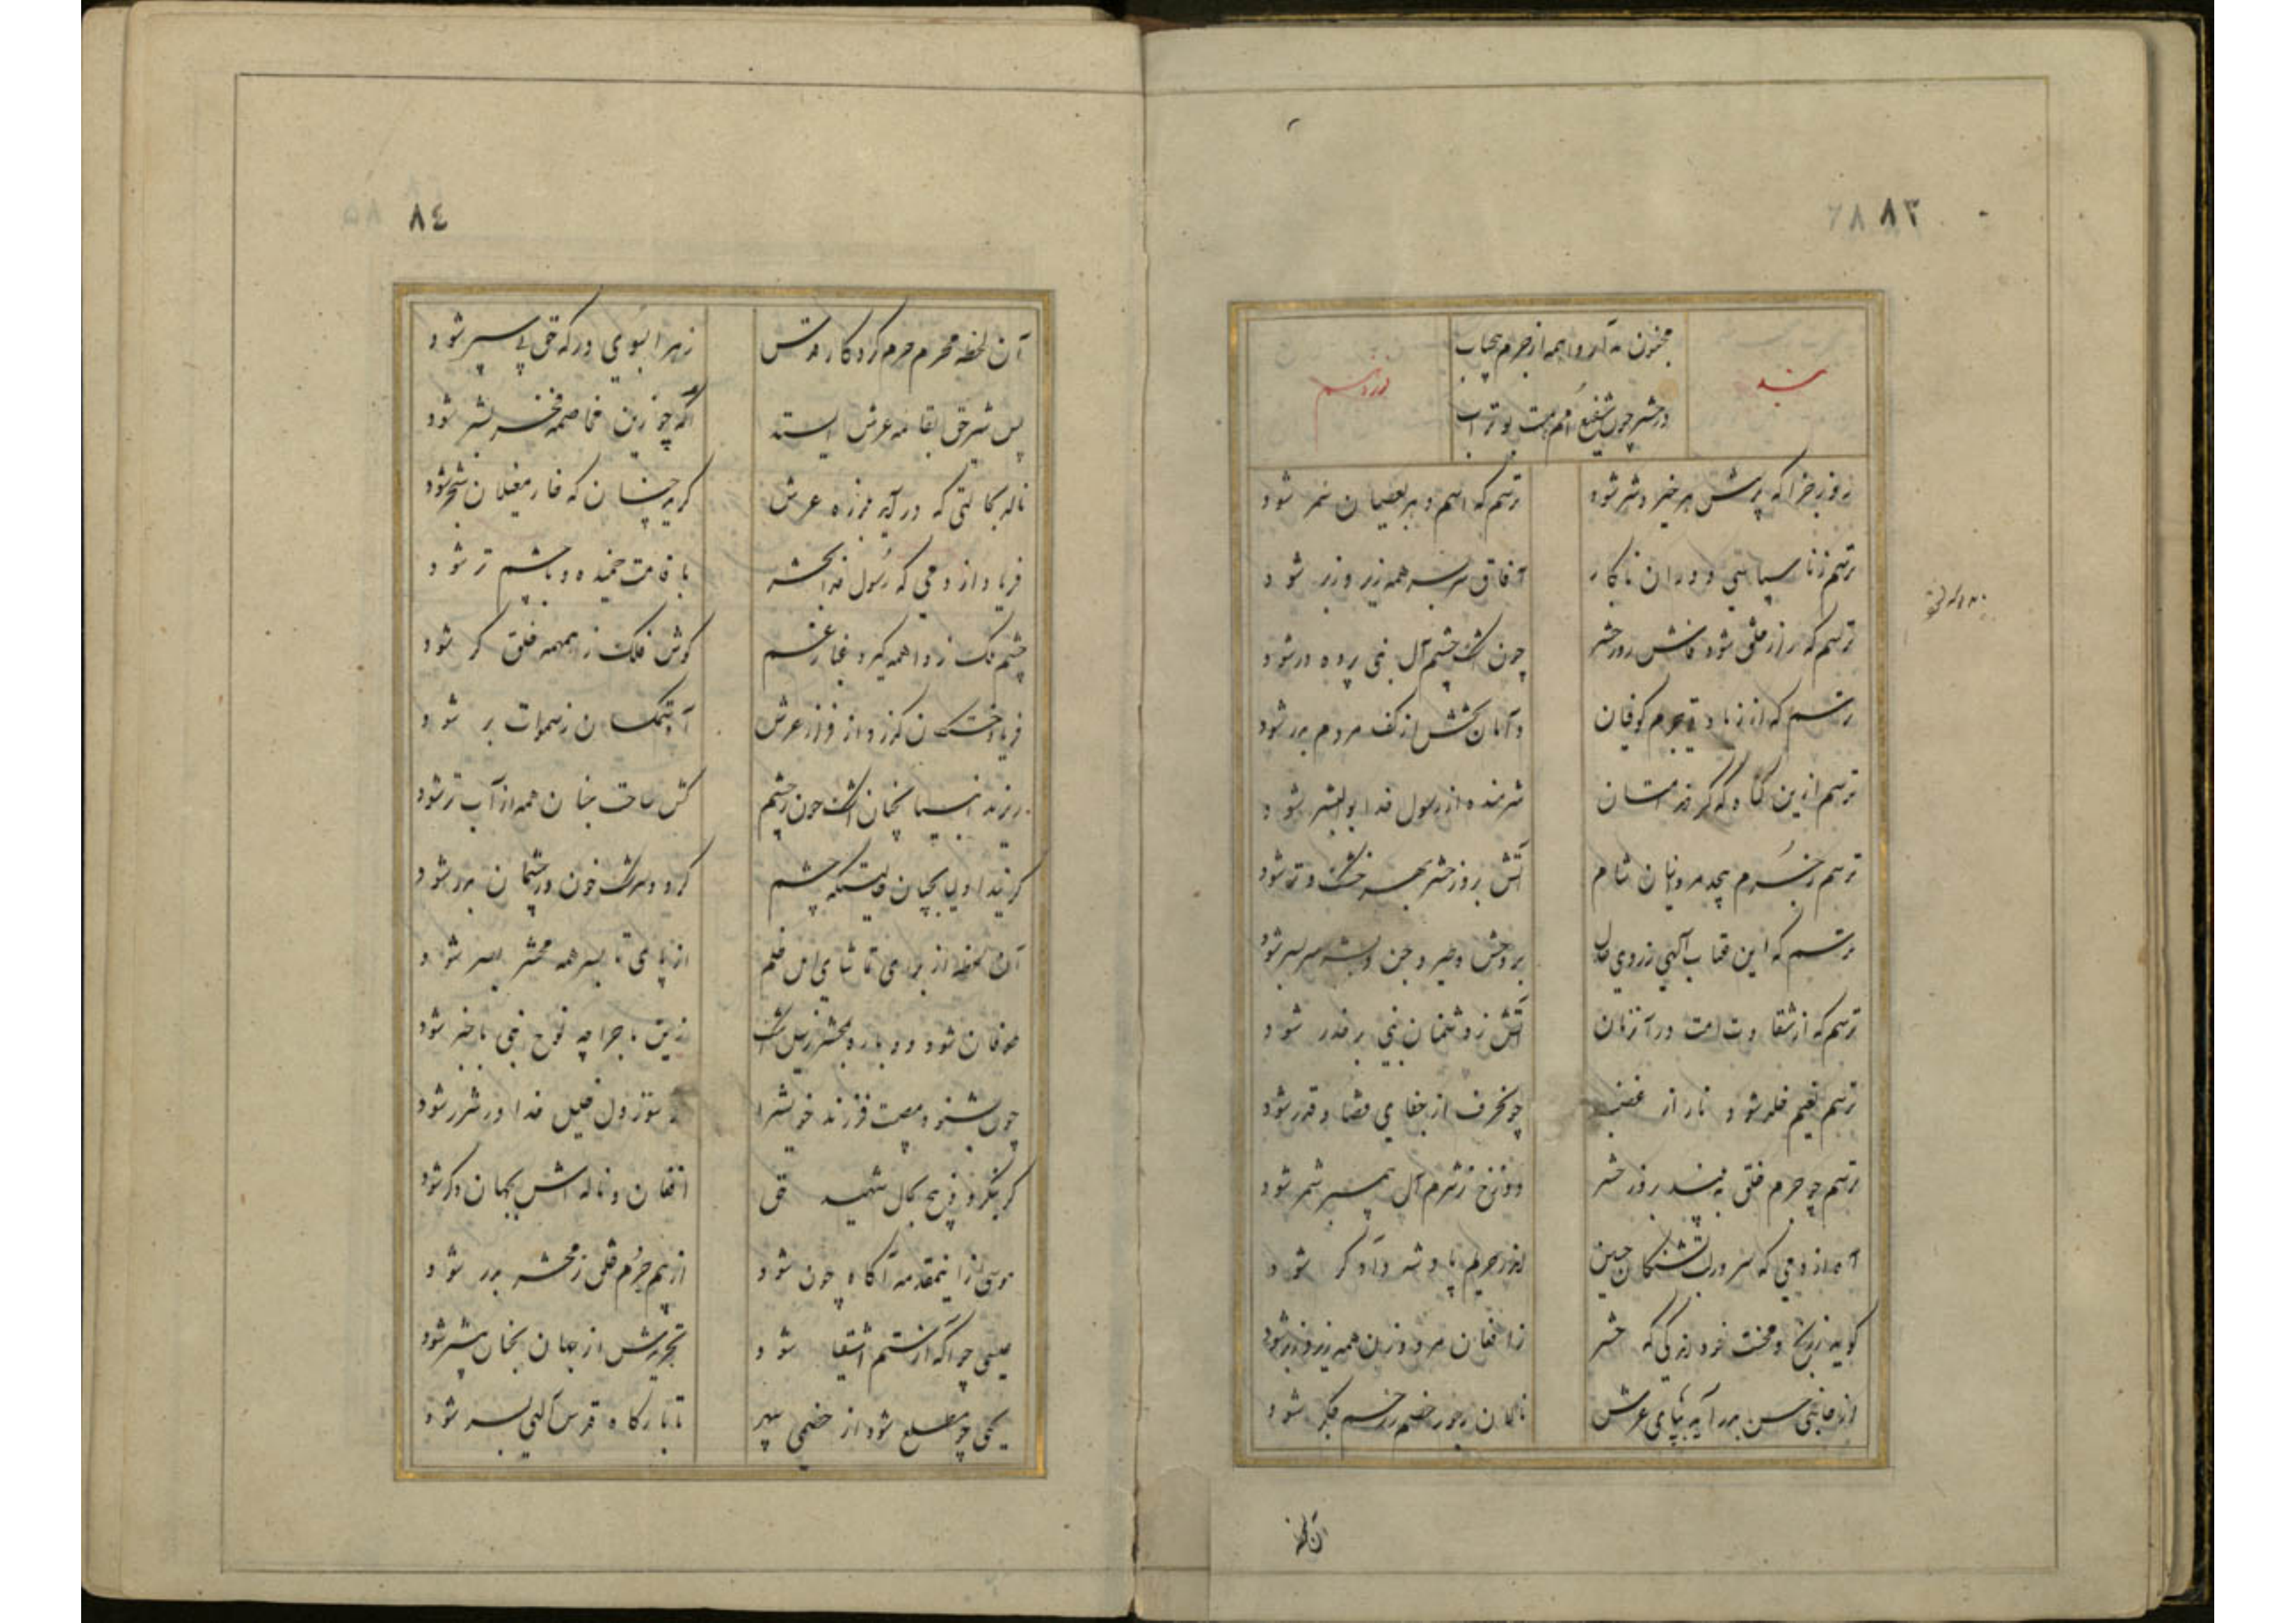 ۸۳
مجنون نه آرد واهمه از جرم بی حساب
بند دوازدهم
در حشر چون شفیع امم هست بوتراب
روز جزا که پرسش هر خیر و شر شود ترسم که اسم و بر عصیان سمر شود
ترسم ز ناسپاسی دوران نابکار آفاق سربسر همه زیر و زبر شود
ترسم که راز خلق شود فاش روز حشر چون اشک چشم آل نبی پرده در شود
ترسم که از زیادتی جرم کوفیان دامان بخشش از کف مردم بدر شود
ترسم ازین گناه که کردند امتان شرمنده از رسول خدا بوالبشر شود
ترسم ز جرم بیحد مروانیان شام آتش بروز حشر بهر خشک و تر شود
ترسم که این عتاب الهی ز روی عدل بر وحش و طیر و جن و بشر سربسر شود
ترسم که از شقاوت امت در آنزمان آتش ز دشمنان نبی بر حذر شود
ترسم نعیم خلد شود نار از غضب چونحرف از جفای قضا و قدر شود
ترسم چو جرم خلق به بیند بروز حشر دوزخ ز شرم آل پیمبر شمر شود
آه از دمی که سرور لب تشنگان حسین اندر حریم پادشه دادگر شود
گوید ز رنج و محنت خود اندکی که حشر ز افغان مرد و زن همه زیر و زبر شود
از جانبی حسن بدر آید بپای عرش نالان ز جور خصم ز زخم جگر شود
آن لحظه
۸٤
آن لحظه محرم حرم کردگار قدس زهرا بسوی درگه حق پی سپر شود
پس شیر حق بقائمه عرش ایستد آگه چو زین مخاصمه خیر بشر شود
ناله بحالتی که درآید بلرزه عرش گرید چنان که خار مغیلان شجر شود
فریاد از دمی که رسول خدا بحشر با قامت خمیده و با چشم تر شود
چشم ملک ز واهمه گیرد غبار غم گوش فلک ز همهمه خلق کر شود
فریاد خستگان گذرد از فراز عرش آه ستمکشان ز سموات بر شود
ریزند انبیا بچنان اشک خون ز چشم کش ساحت جنان همه از آب تر شود
گریند اولیا بچنان حالتیکه چشم گردد سرشک خون و ز چشمان بدر شود
آن لحظه از برای تماشای این ظلم از پای تا بسر همه محشر بصر شود
طوفان شود دوباره بمحشر ز سیل اشک زین ماجرا چه نوح نبی باخبر شود
چون بشنود مصیبت فرزند خویش را از سوز دل خلیل خدا در شرر شود
گر بنگرد ذبیح بحال شهید حق افغان و ناله اش بجهان دگر شود
موسی ازاینمقدمه آگاه چون شود از بیم جرم خلق ز محشر بدر شود
عیسی چو آگه از ستم اشقیا شود تجریدش از جهان بجنان بیشتر شود
یحیی چو مطلع شود از خصمی سپهر تا بارگاه قدس الهی بسر شود